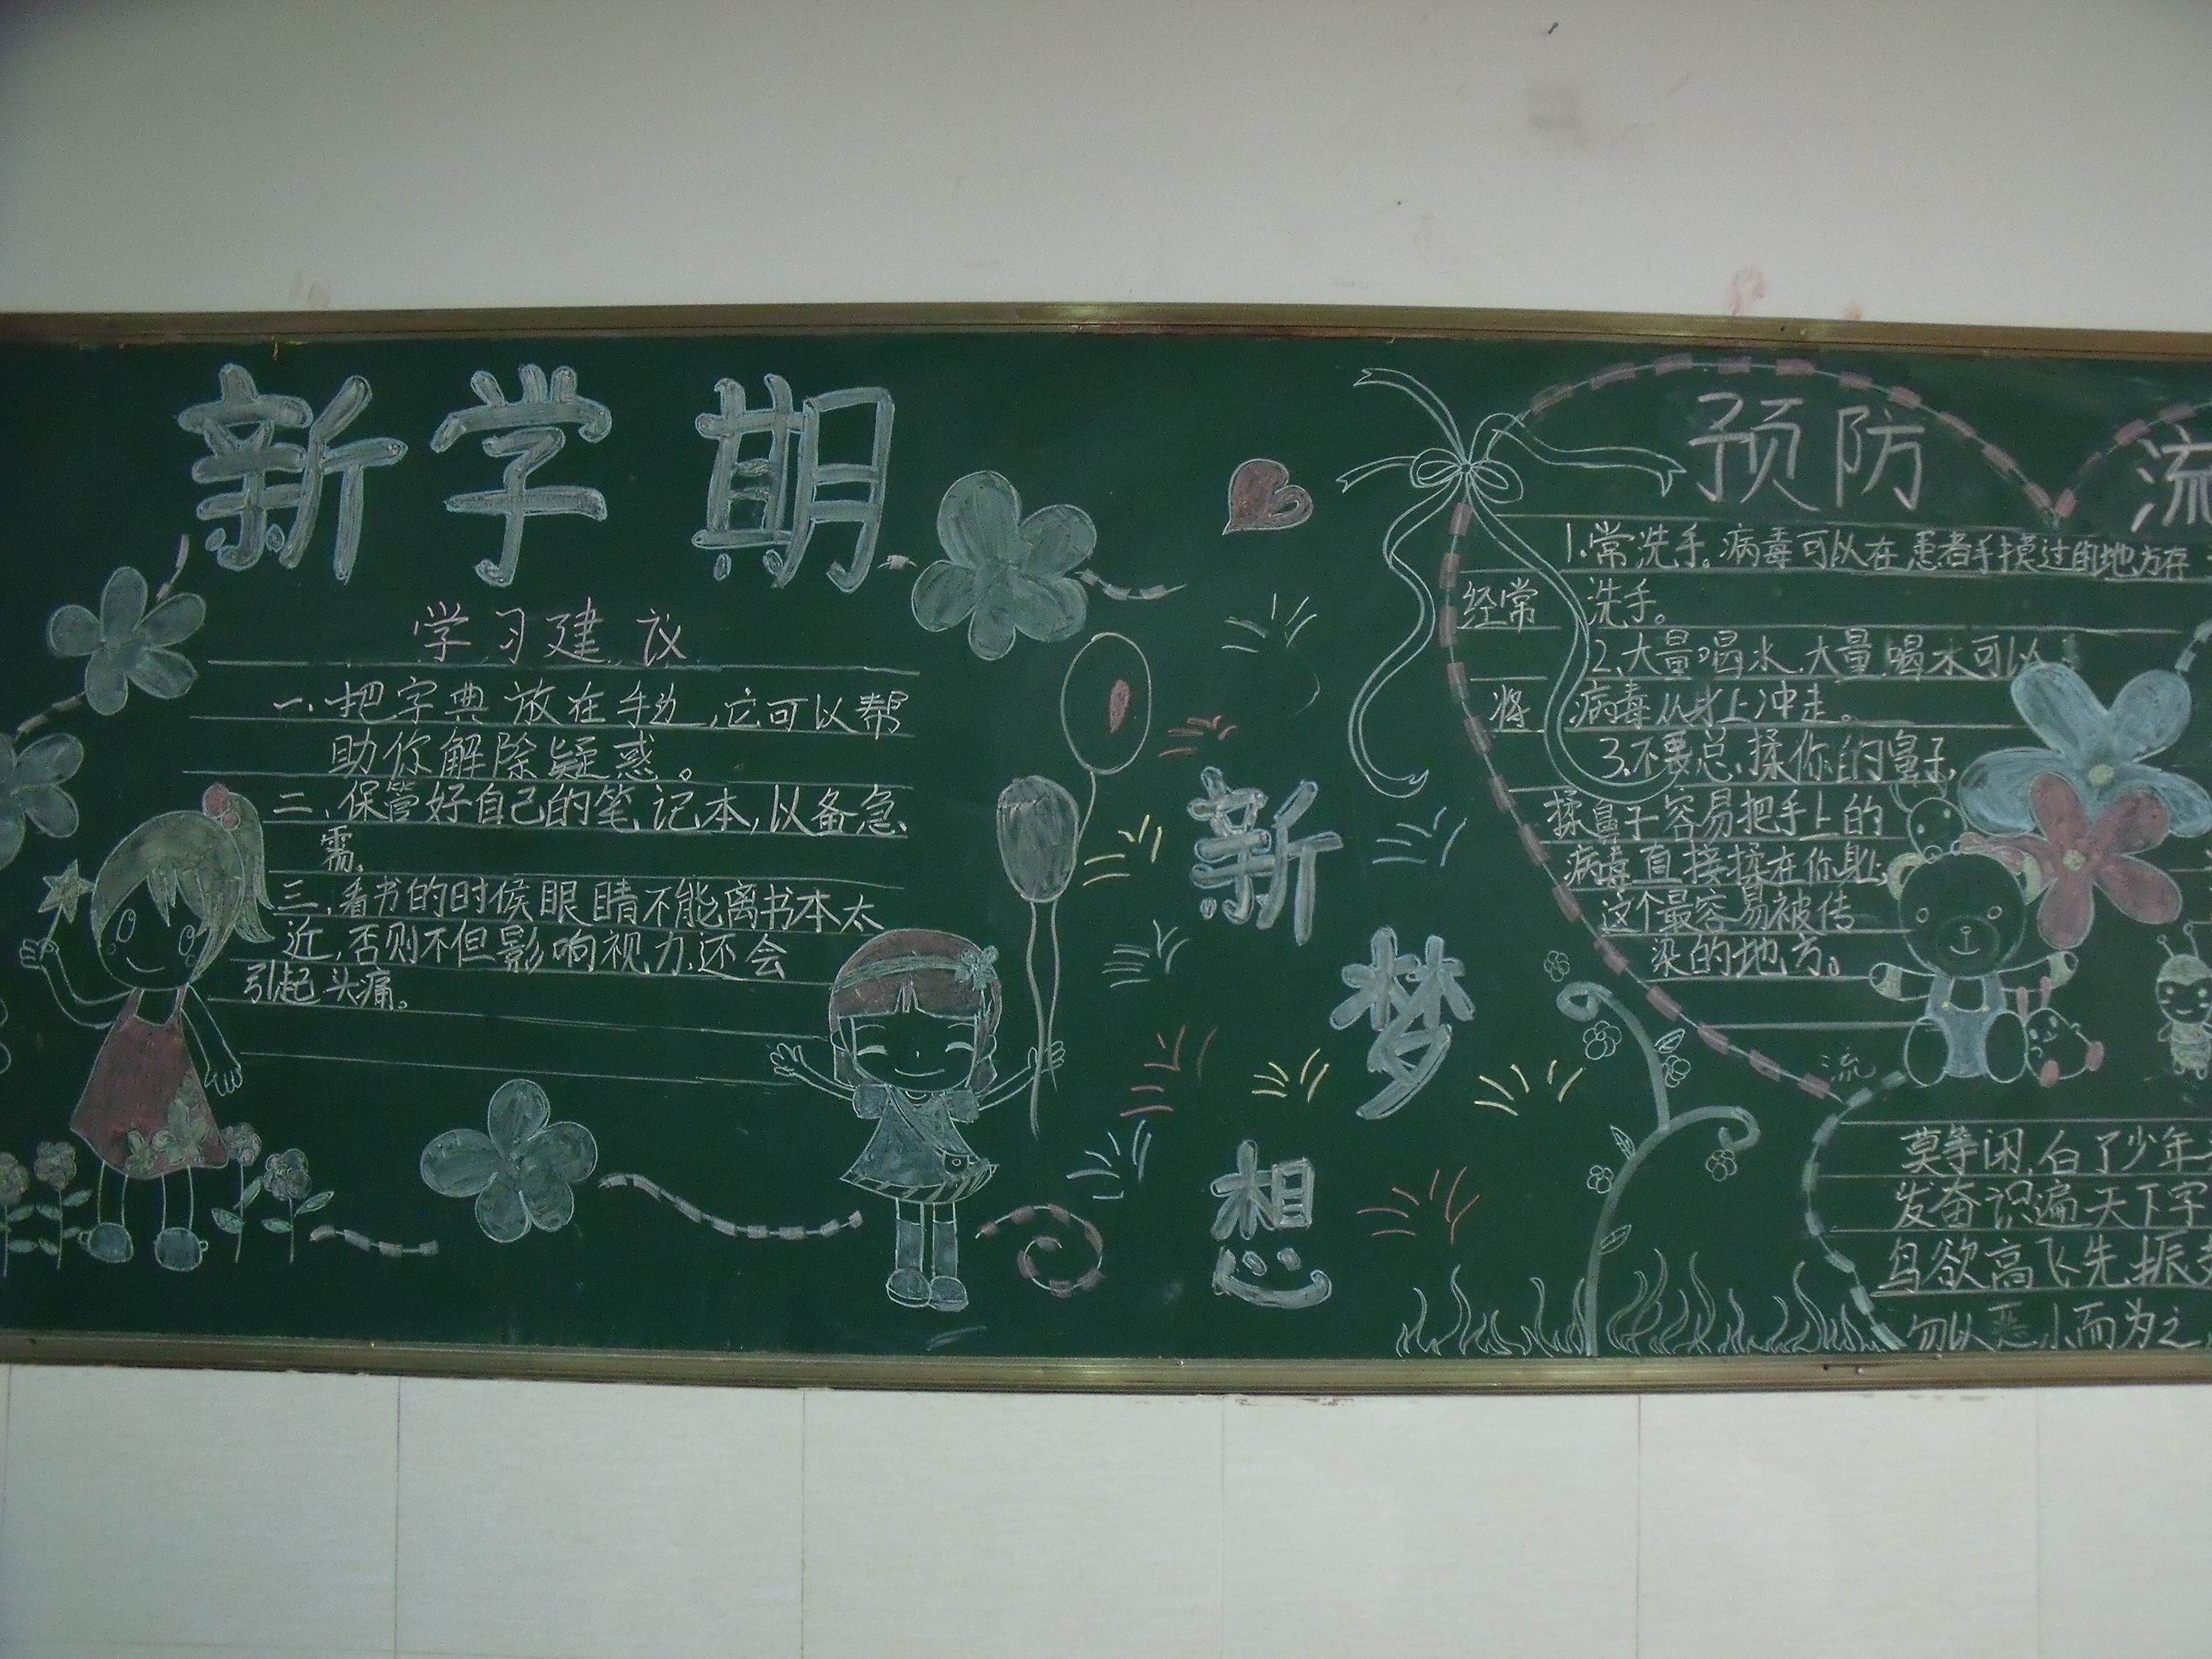 新学期
学习建议
一、把字典放在手边,它可以帮
助你解除疑惑。
二、保管好自己的笔记本,以备急
需、
三、看书的时候眼睛不能离书本太
近,否则不但影响视力,还会
引起头痛。
新
梦
想
预防流
1、常洗手。病毒可以在患者手摸过的地方存
经常洗手。
2、大量喝水、大量喝水可以
将病毒从身上冲走。
3、不要总揉你的鼻子,
揉鼻子容易把手上的
病毒直接揉在你身上,
这个最容易被传
染的地方。
流
莫等闲,白了少年
发奋识遍天下字
鸟欲高飞先振
勿以恶小而为之